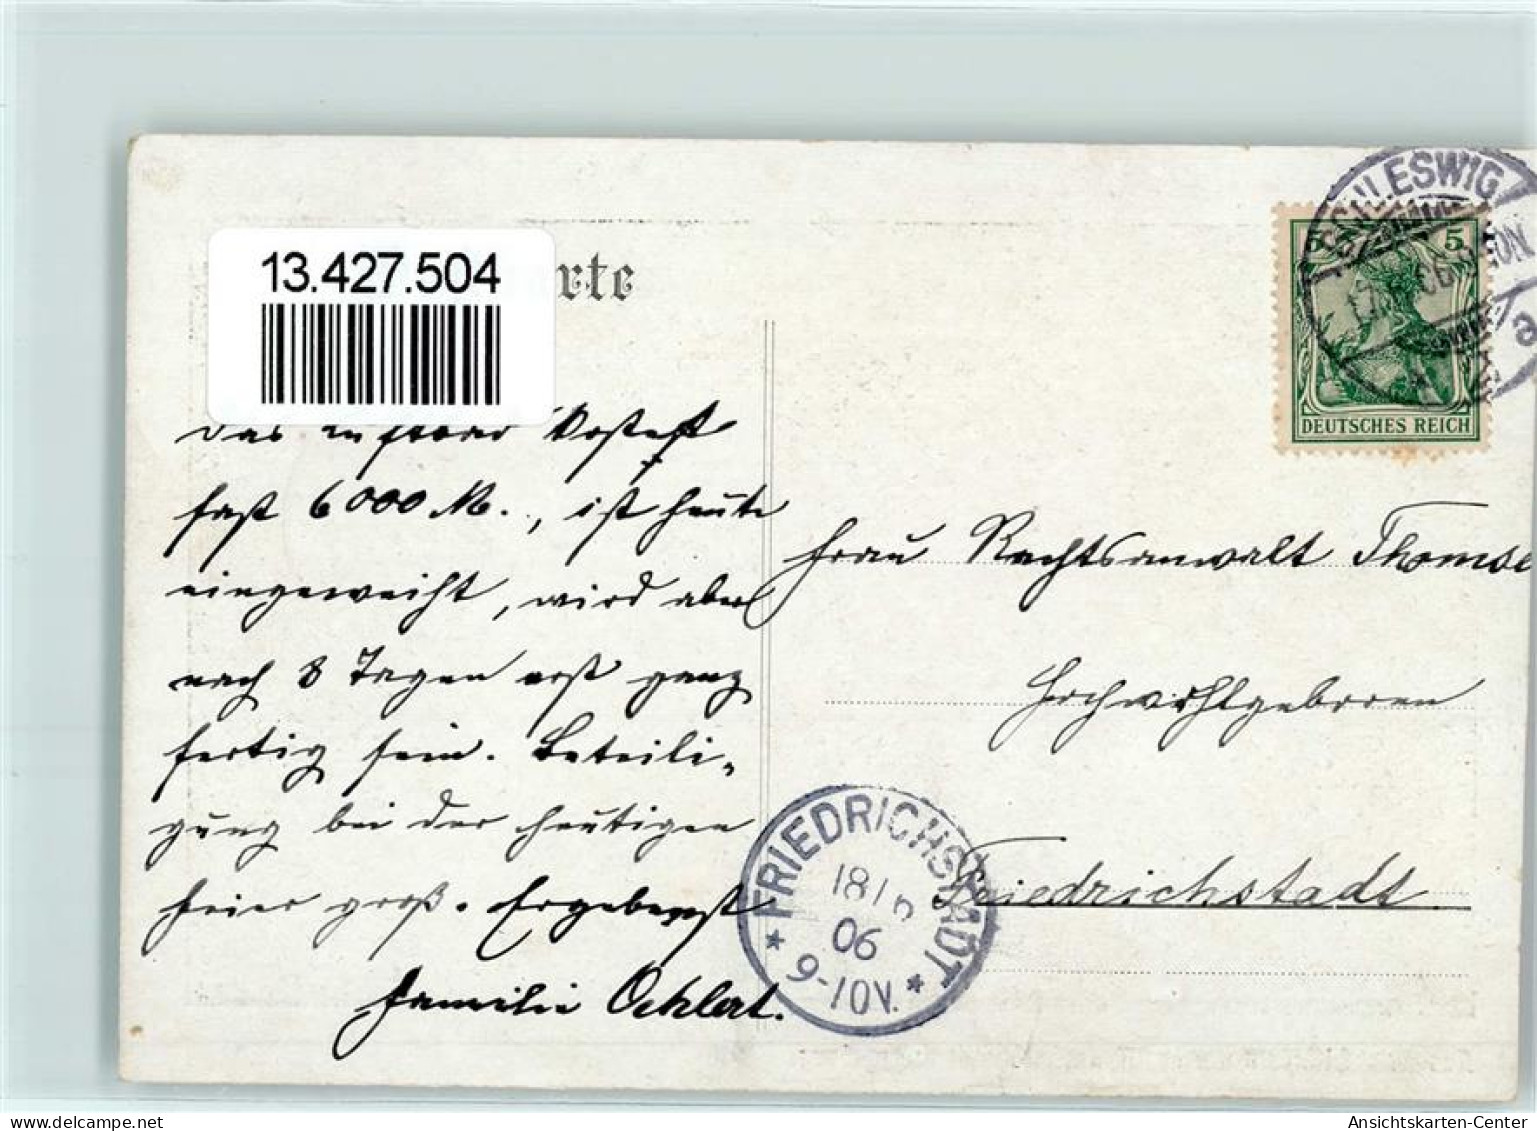 13.427.504
rte
SCHLESWIG
5 5
06
a
DEUTSCHES REICH
Das
fast 6000 M., ist heute
eingeweiht, wird aber
nach 8 Tagen erst ganz
fertig sein. Beteili-
gung bei der heutigen
Feier groß. Ergebenst
Familie Oehlert.
Frau Rechtsanwalt Thomse
Hochwohlgeboren
Friedrichstadt
FRIEDRICHSTADT
18/6
06
9-10V.
Ansichtskarten-Center